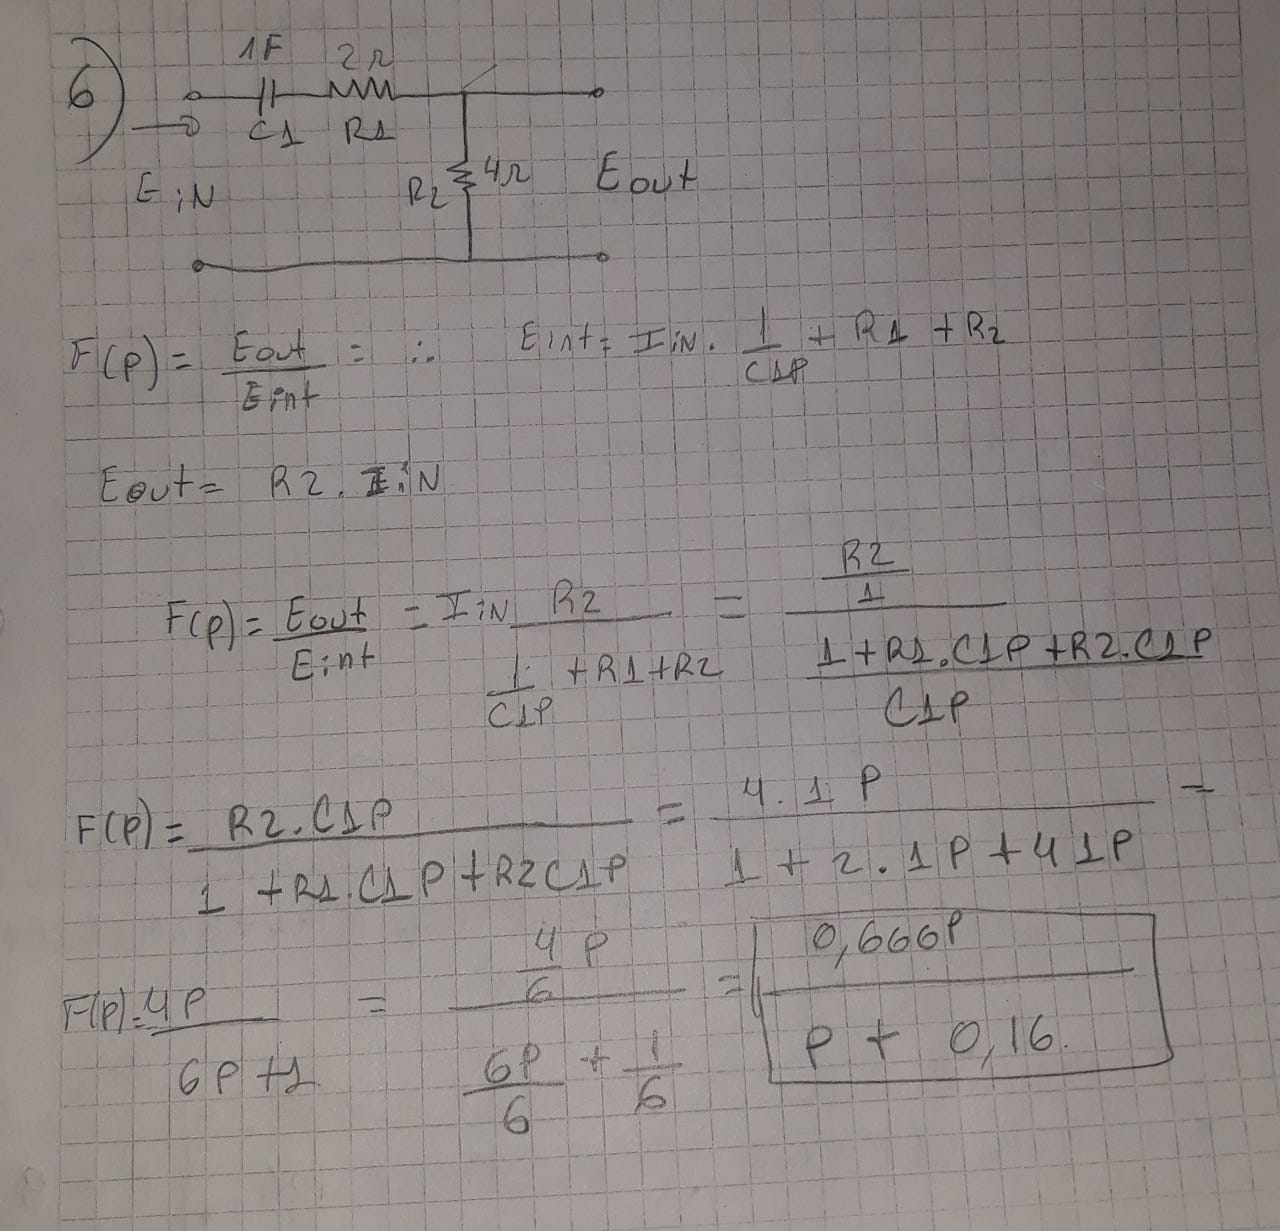 6)
1F 2Ω
C1 R1
E iN R2 4Ω Eout
F(p) = Eout / Eint = ∴ Eint = I iN . 1 / C1P + R1 + R2
Eout = R2 . I iN
F(p) = Eout / Eint = I iN R2 / 1 / C1P + R1 + R2 = R2 / 1 / 1 + R1 . C1P + R2 . C1P / C1P
F(p) = R2 . C1P / 1 + R1 . C1P + R2 C1P = 4 . 1 P / 1 + 2 . 1P + 4 1P =
F(p) = 4P / 6P + 1 = 4 / 6 P / 6P / 6 + 1 / 6 = 0,666P / P + 0,16.